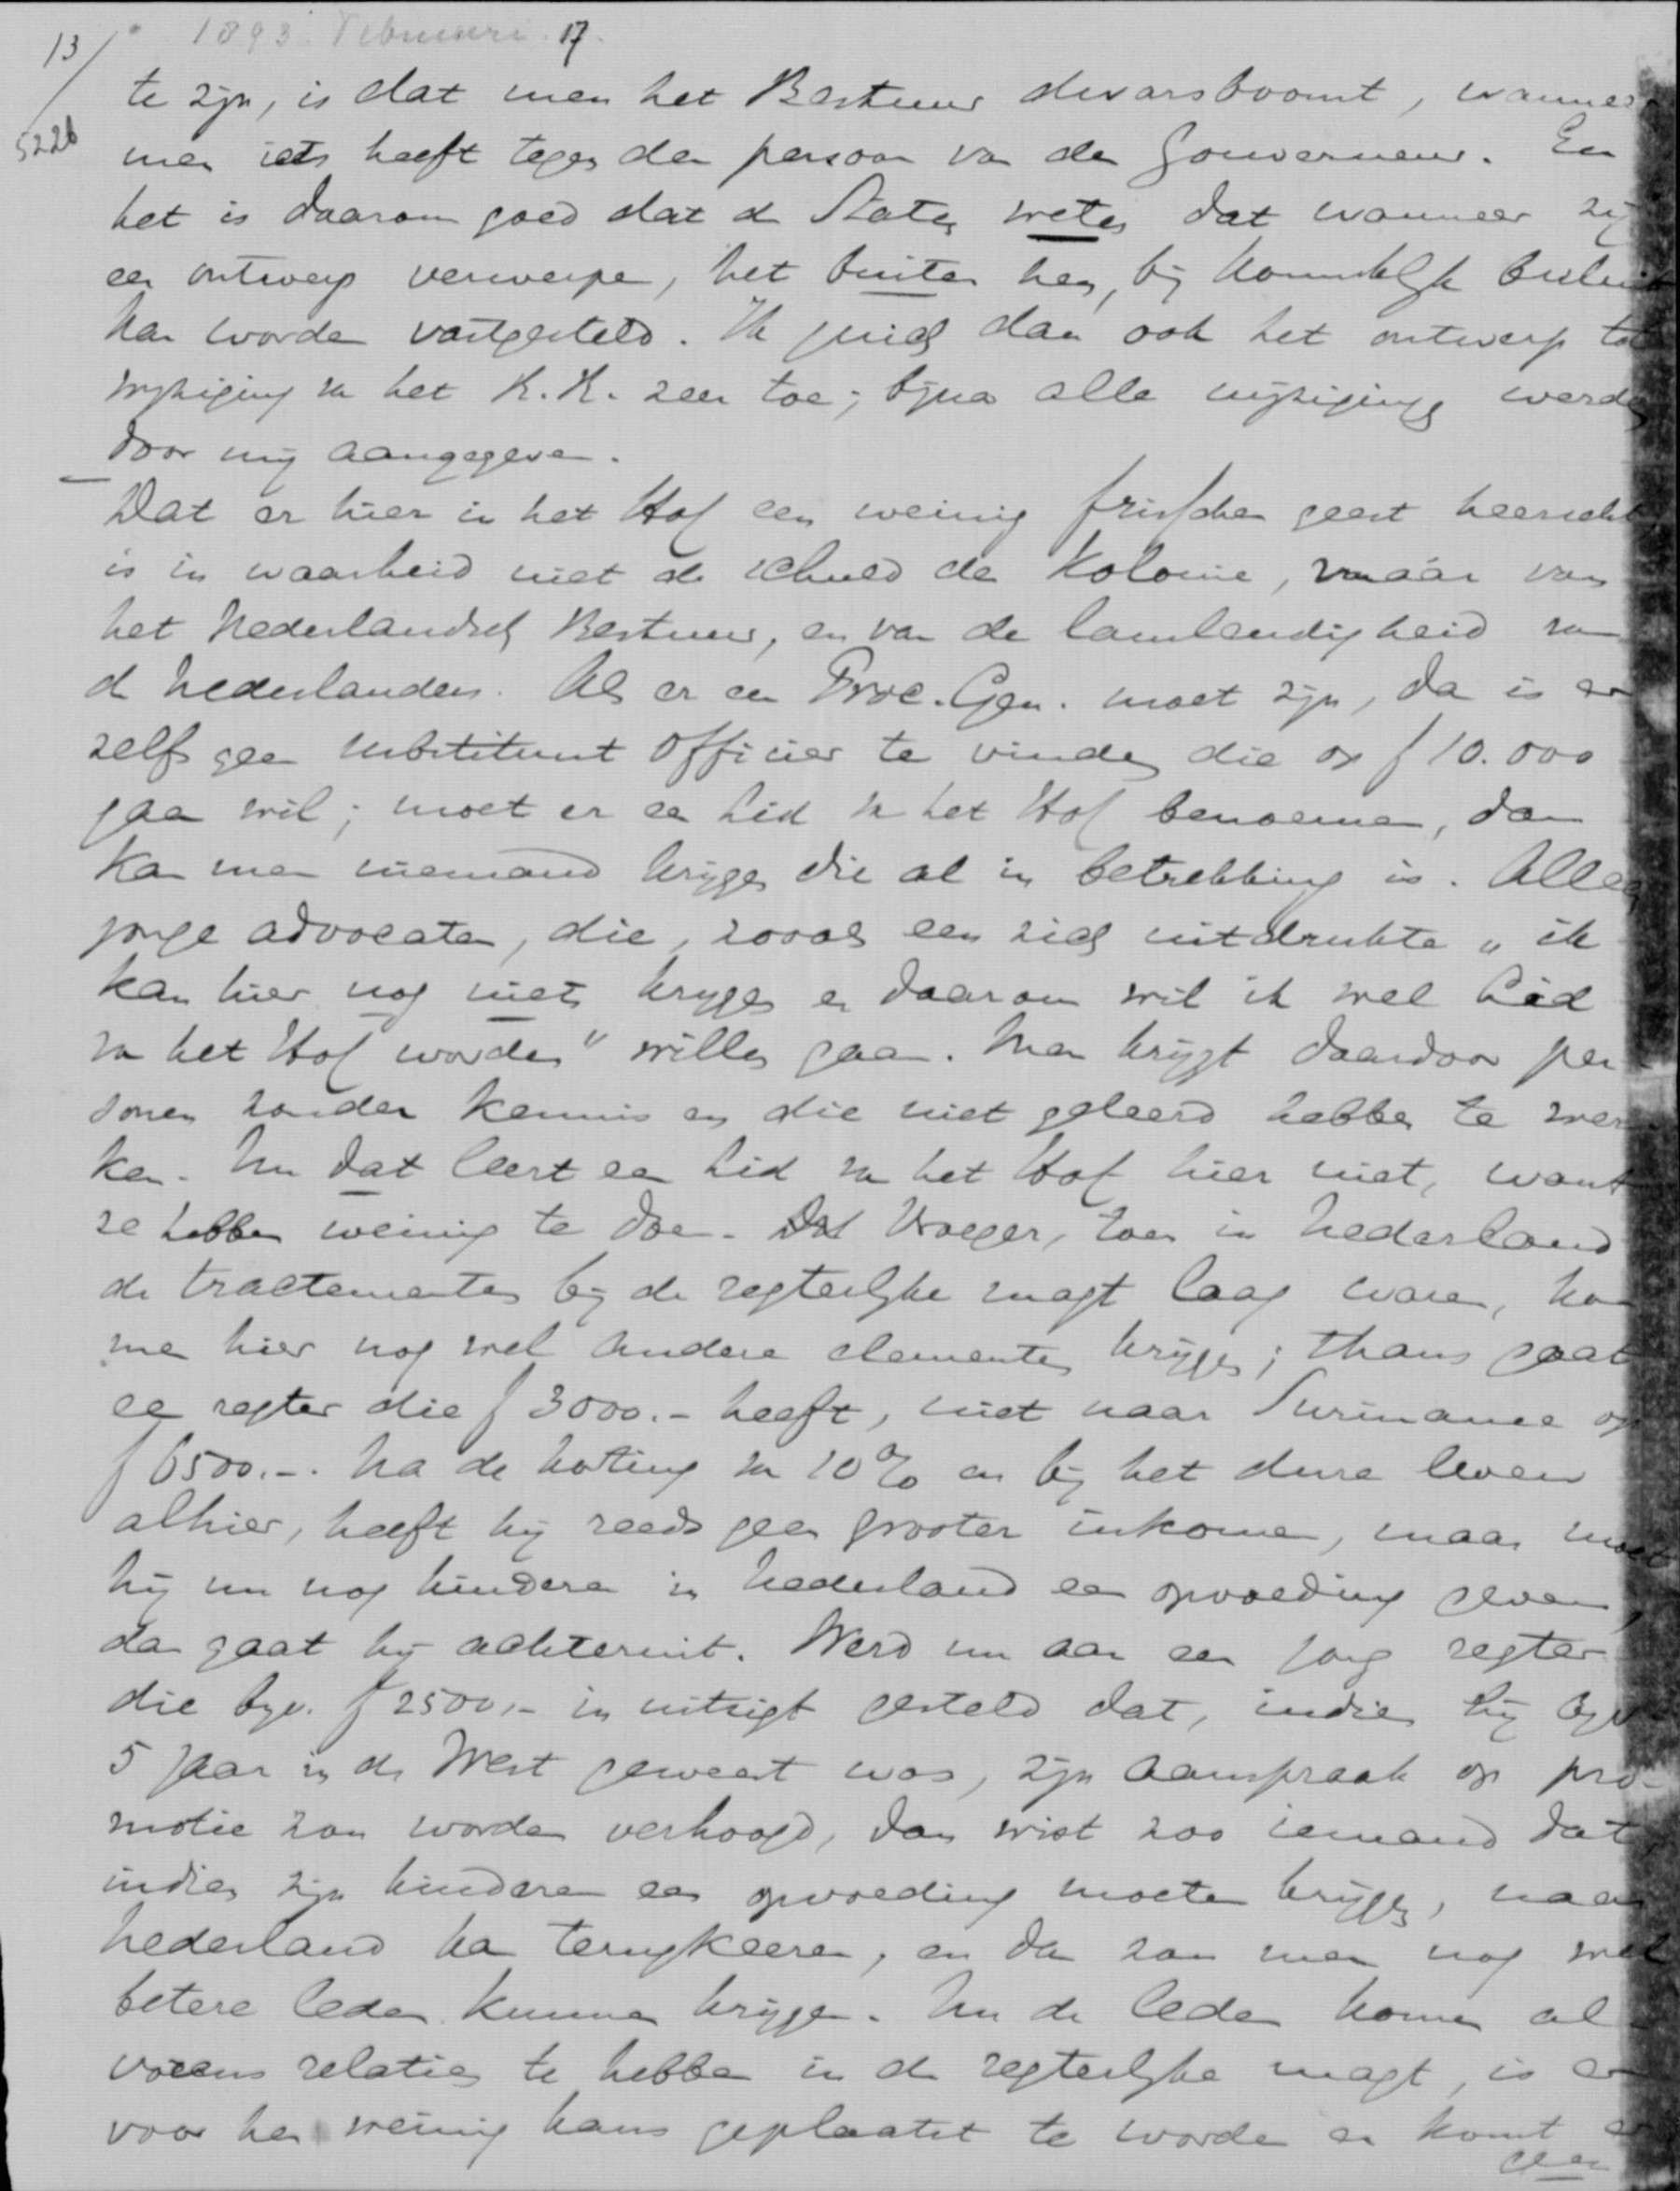 13/ 1893 Februari 17.
5226
te zijn, is dat men het Bestuur dwarsboomt, wanneer
men iets heeft tegen den persoon van den Gouverneur. En
het is daarom goed dat de Staten weten dat wanneer zij
een ontwerp verwerpen, het buiten hen, bij Koninklijk besluit
kan worden vastgesteld. Ik juich dan ook het ontwerp tot
wijziging van het R.R. zeer toe; bijna alle wijzigingen werden
door mij aangegeven.
Dat er hier in het Hof een weinig frisschen geest heerscht
is in waarheid niet de schuld der Kolonie, maar van
het Nederlandsch Bestuur, en van de lamlendigheid van
de Nederlanders. Als er een Proc. Gen. moet zijn, dan is er
zelfs geen substituut Officier te vinden die op f 10.000
gaan wil; moet er een Lid van het Hof benoemen, dan
kan men niemand krijgen die al in betrekking is. Alleen
jonge advocaten, die, zooals een zich uitdrukte „ik
kan hier nog niets krijgen en daarom wil ik wel Lid
van het Hof worden" willen gaan. Men krijgt daardoor per-
sonen zonder kennis en die niet geleerd hebben te wer-
ken. Nu dat leert een Lid van het Hof hier niet, want
ze hebben weinig te doen. Vroeger, toen in Nederland
de tractementen bij de regterlijke magt laag waren, kon
men hier nog wel andere elementen krijgen; thans gaat
een regter die f 3000.- heeft, niet naar Suriname op
f 6500.-. Na de korting van 10% en bij het dure leven
alhier, heeft hij reeds geen grooter inkomen, maar moet
hij nu nog kinderen in Nederland een opvoeding geven,
dan gaat hij achteruit. Werd nu aan een jong regter
die bijv. f 2500,- in uitzigt gesteld dat, indien hij bijv
5 jaar in de West geweest was, zijn aanspraak op pro-
motie zou worden verhoogd, dan wist zoo iemand dat,
indien zijn kinderen een opvoeding moeten krijgen, naar
Nederland kan terugkeeren, en dan zou men nog wel
betere leden kunnen krijgen. Nu de leden komen al-
vorens relaties te hebben in de regterlijke magt, is er
voor hen weinig kans geplaatst te worden en komt er
geen